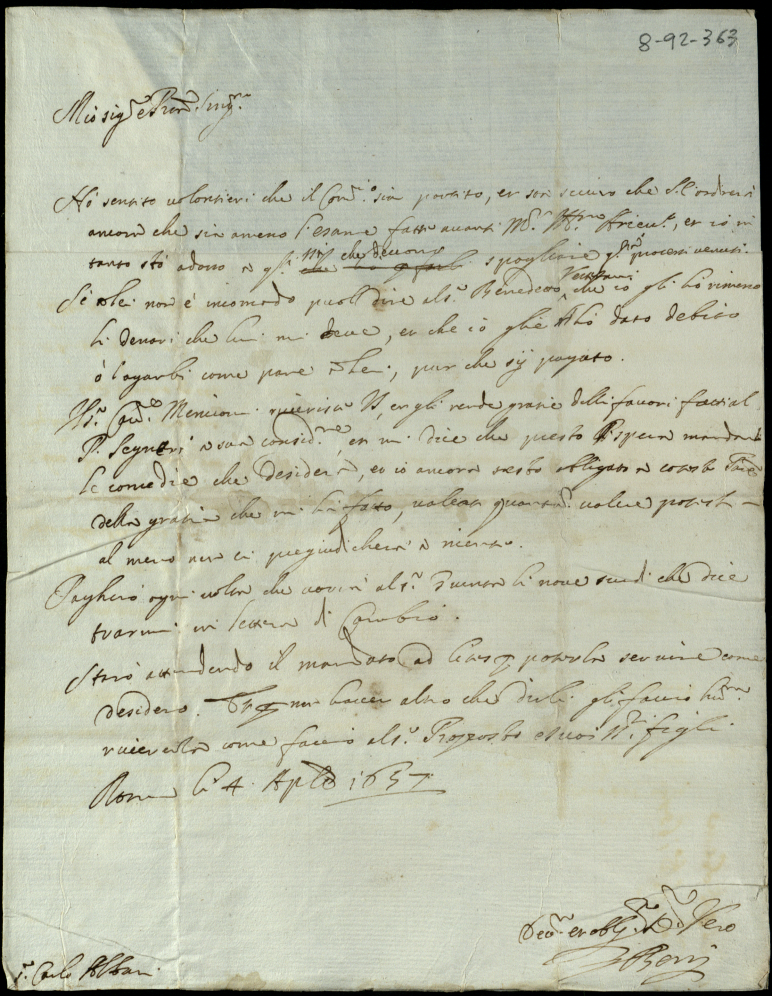 8-92-363
Mio sig.r e Pron Sing.mo
Hò sentito volontieri che il Com.o sia partito, et son sicuro che S. l'ordinerà
ancora che sia ameno l'esame fatto avanti M.r et io in
tanto stò adosso a gl' che devono spogliare processi venuti.
Se à lei non è incomodo puol dire al s.r Benedetto Venturani che io gli hò rimesso
li denari che lui mi deve, et che io gliè l'hò dato debito
ò lagarbi come pare à lei, pur che sij pagato.
Il s.r Mencioni riverisce VS, et gli rende gratie delli favori fatti al
P. Segneri a sua consid.ne, et mi dice che questo spera mandarà
le comedie che desidera, et io ancora resto obligato a cotesto Padre
della gratia che mi hà fatto, valeat quantum valere potest
al meno non ci pregiudicherà a niente.
Pagherò ogni volta che vorrà al s.r li nove scudi che dice
trarmi in lettera di Cambio.
Starò attendendo il mandato ad lites potrla servire come
desidero. Et per non haver altro che dirli gli faccio hum.
riverenza come faccio al s.r Proposto e suoi ss.ri figli
Roma li 4 Aple 1657
Dev.mo et oblig.mo Ser. Vero
Berni
s.r Carlo Albani